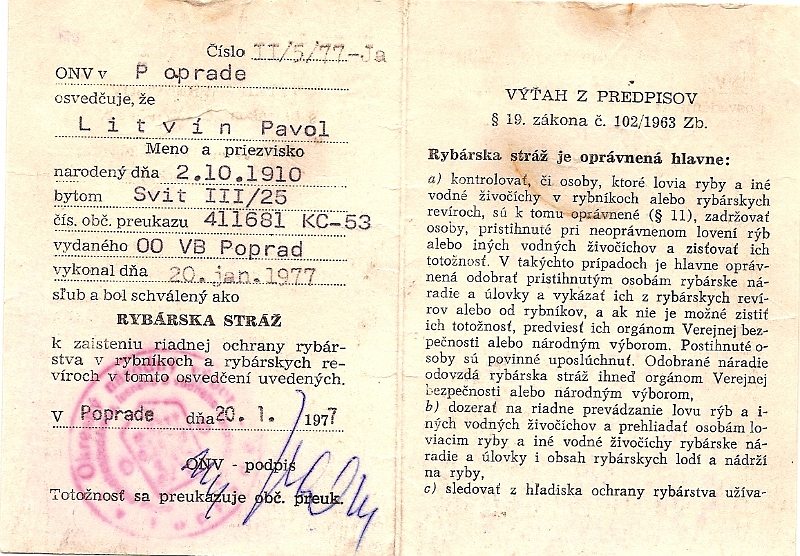 Číslo II/5/77-Ja
ONV v P oprade
osvedčuje, že
Litvín Pavol
Meno a priezvisko
narodený dňa 2.10.1910
bytom Svit III/25
čís. obč. preukazu 411681 KC-53
vydaného OO VB Poprad
vykonal dňa 20.jan.1977
sľub a bol schválený ako
RYBÁRSKA STRÁŽ
k zaisteniu riadnej ochrany rybár-
stva v rybníkoch a rybárskych re-
víroch v tomto osvedčení uvedených.
V Poprade dňa 20. 1. 1977
ONV - podpis
Totožnosť sa preukazuje obč. preuk.
VÝŤAH Z PREDPISOV
§ 19. zákona č. 102/1963 Zb.
Rybárska stráž je oprávnená hlavne:
a) kontrolovať, či osoby, ktoré lovia ryby a iné
vodné živočíchy v rybníkoch alebo rybárskych
revíroch, sú k tomu oprávnené (§ 11), zadržovať
osoby, pristihnuté pri neoprávnenom lovení rýb
alebo iných vodných živočíchov a zisťovať ich
totožnosť. V takýchto prípadoch je hlavne opráv-
nená odobrať pristihnutým osobám rybárske ná-
radie a úlovky a vykázať ich z rybárskych reví-
rov alebo od rybníkov, a ak nie je možné zistiť
ich totožnosť, predviesť ich orgánom Verejnej bez-
pečnosti alebo národným výborom. Postihnuté o-
soby sú povinné uposlúchnuť. Odobrané náradie
odovzdá rybárska stráž ihneď orgánom Verejnej
bezpečnosti alebo národným výborom,
b) dozerať na riadne prevádzanie lovu rýb a i-
ných vodných živočíchov a prehliadať osobám lo-
viacim ryby a iné vodné živočíchy rybárske ná-
radie a úlovky i obsah rybárskych lodí a nádrží
na ryby,
c) sledovať z hľadiska ochrany rybárstva užíva-